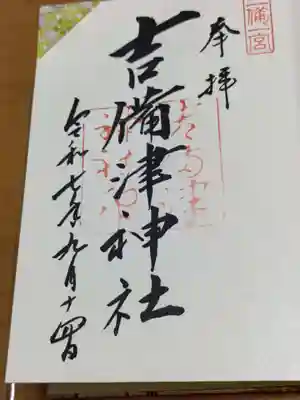 奉拝
備一宮
吉備津神社
令和七年九月十四日